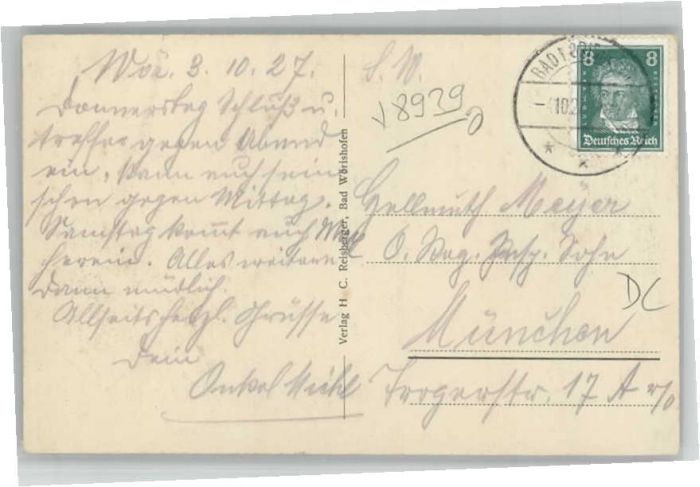 Wör. 3. 10. 27.
Donnerstag Schluß u.
treffe gegen Abend
ein, kann auch sein
schon gegen Mittag.
Samstag kommt auch
herein. Alles weitere
dann mündlich.
Allseits herzl. Grüsse
Dein
Onkel Michl
Verlag H. C. Reisberger, Bad Wörishofen
S. H.
v 8939
BAD WÖRIS
10.2
8 8
Deutsches Reich
Hellmuth Meyer
O. Sohn
München
Trogerstr. 17 A
DC